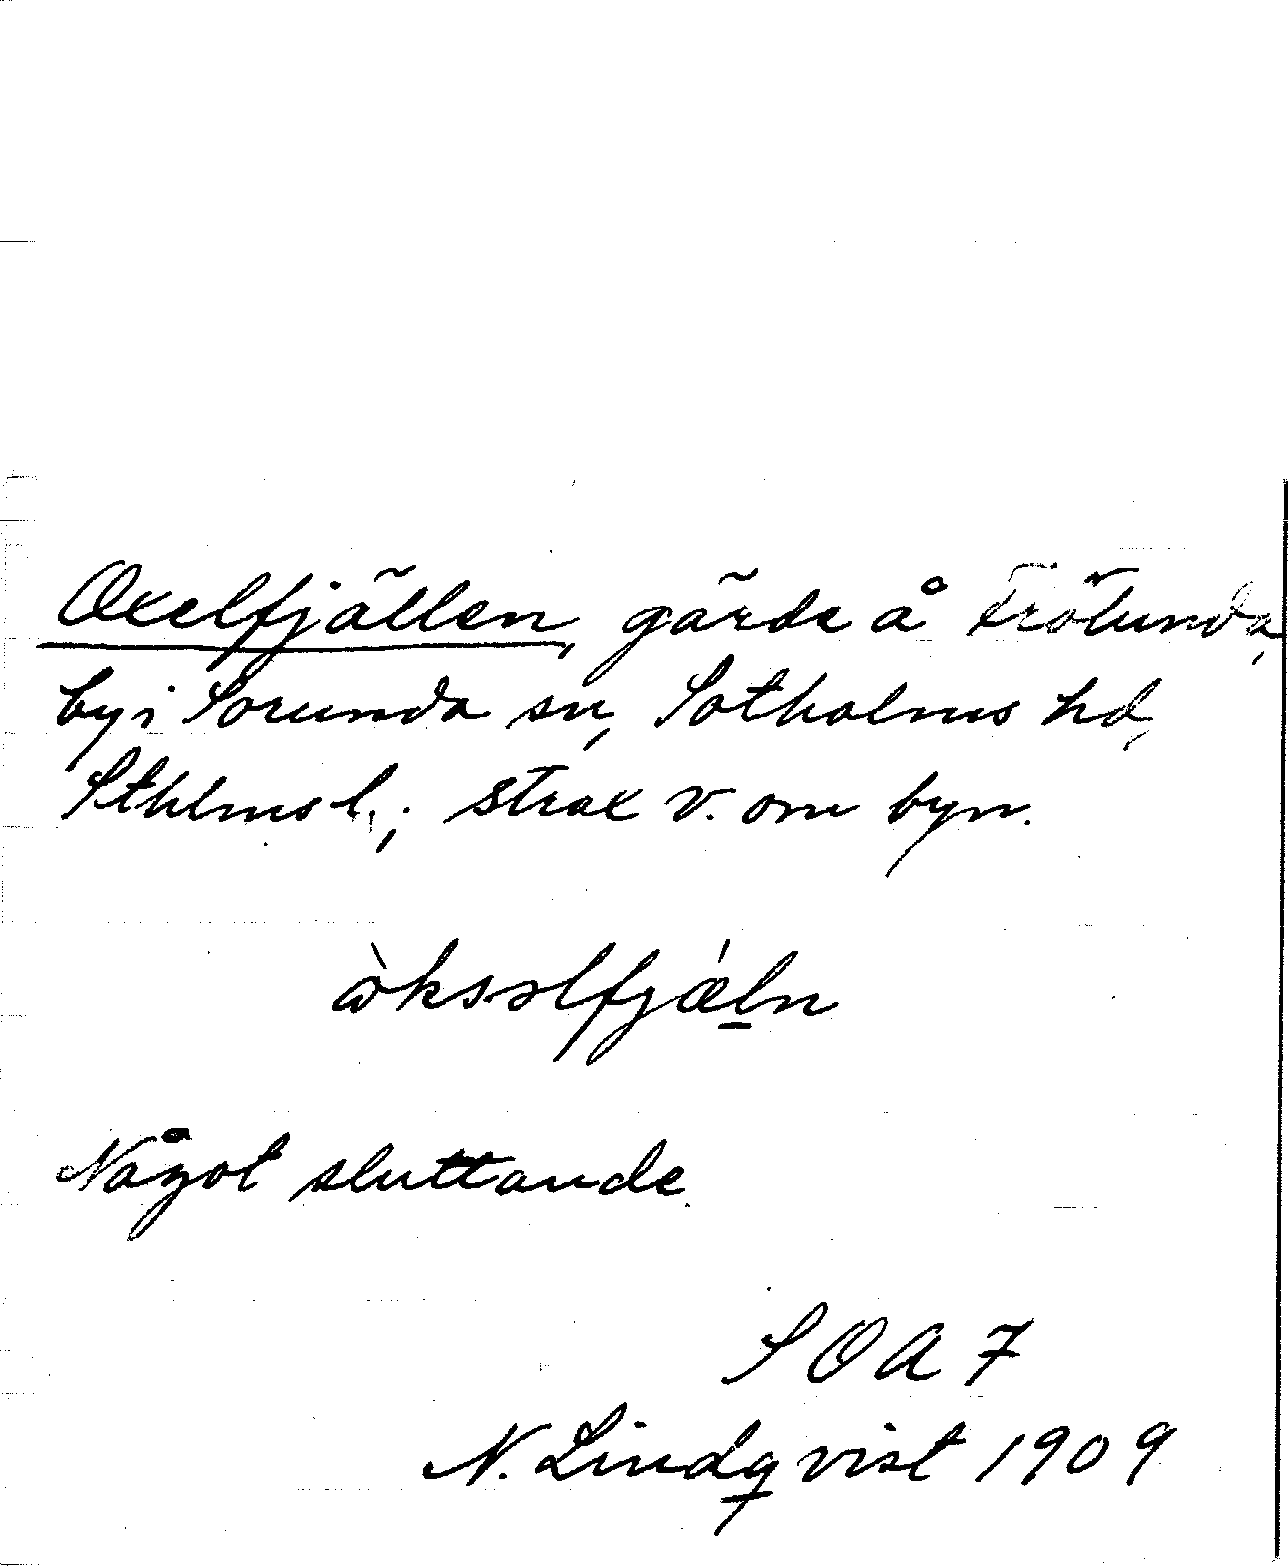 Oxelfjällen, gärde å Trölunda,
by i Sorunda sn, Sotholms hd,
Sthlms l.; strax v. om byn.
ὼksəlfjǽl̠n
Något sluttande.
S O A 7
N. Lindqvist 1909